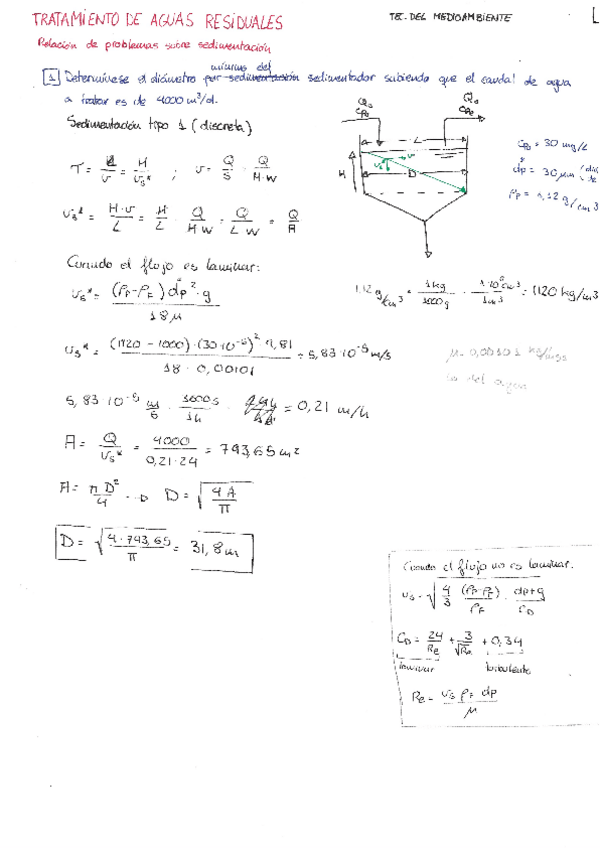 TRATAMIENTO DE AGUAS RESIDUALES
TEC. DEL MEDIOAMBIENTE
Relación de problemas sobre sedimentación
mínimo del
1 Determínese el diámetro por sedimentación sedimentador sabiendo que el caudal de agua
a tratar es de 4000 m³/d.
Sedimentación tipo 1 (discreta)
Q₀
L
H
D
Cp₀ = 30 mg/L
dp = 30 μm
ρp = 1,12 g/cm³
T = H/v = H/vs* ; v = Q/S = Q/H·W
vs* = H·v/L = H/L · Q/H·W = Q/L·W = Q/A
Cuando el flujo es laminar:
vs* = (ρp-ρF) dp²·g / 18μ
1,12 g/cm³ · 1kg/1000g · 1·10⁶cm³/1m³ = 1120 kg/m³
vs* = (1120 - 1000)·(30·10⁻⁶)²·9,81 / 18·0,00101 = 5,83·10⁻⁵ m/s
μ = 0,00101 kg/m·s
la del agua
5,83·10⁻⁵ m/s · 3600s/1h = 0,21 m/h
A = Q/vs* = 4000/0,21·24 = 793,65 m²
A = πD²/4 → D = √(4A/π)
D = √(4·793,65/π) = 31,8 m
Cuando el flujo no es laminar:
vs = √(4/3 (ρp-ρF)/ρF · dp·g/CD)
CD = 24/Re + 3/√Re + 0,34
laminar turbulento
Re = vs ρF dp / μ